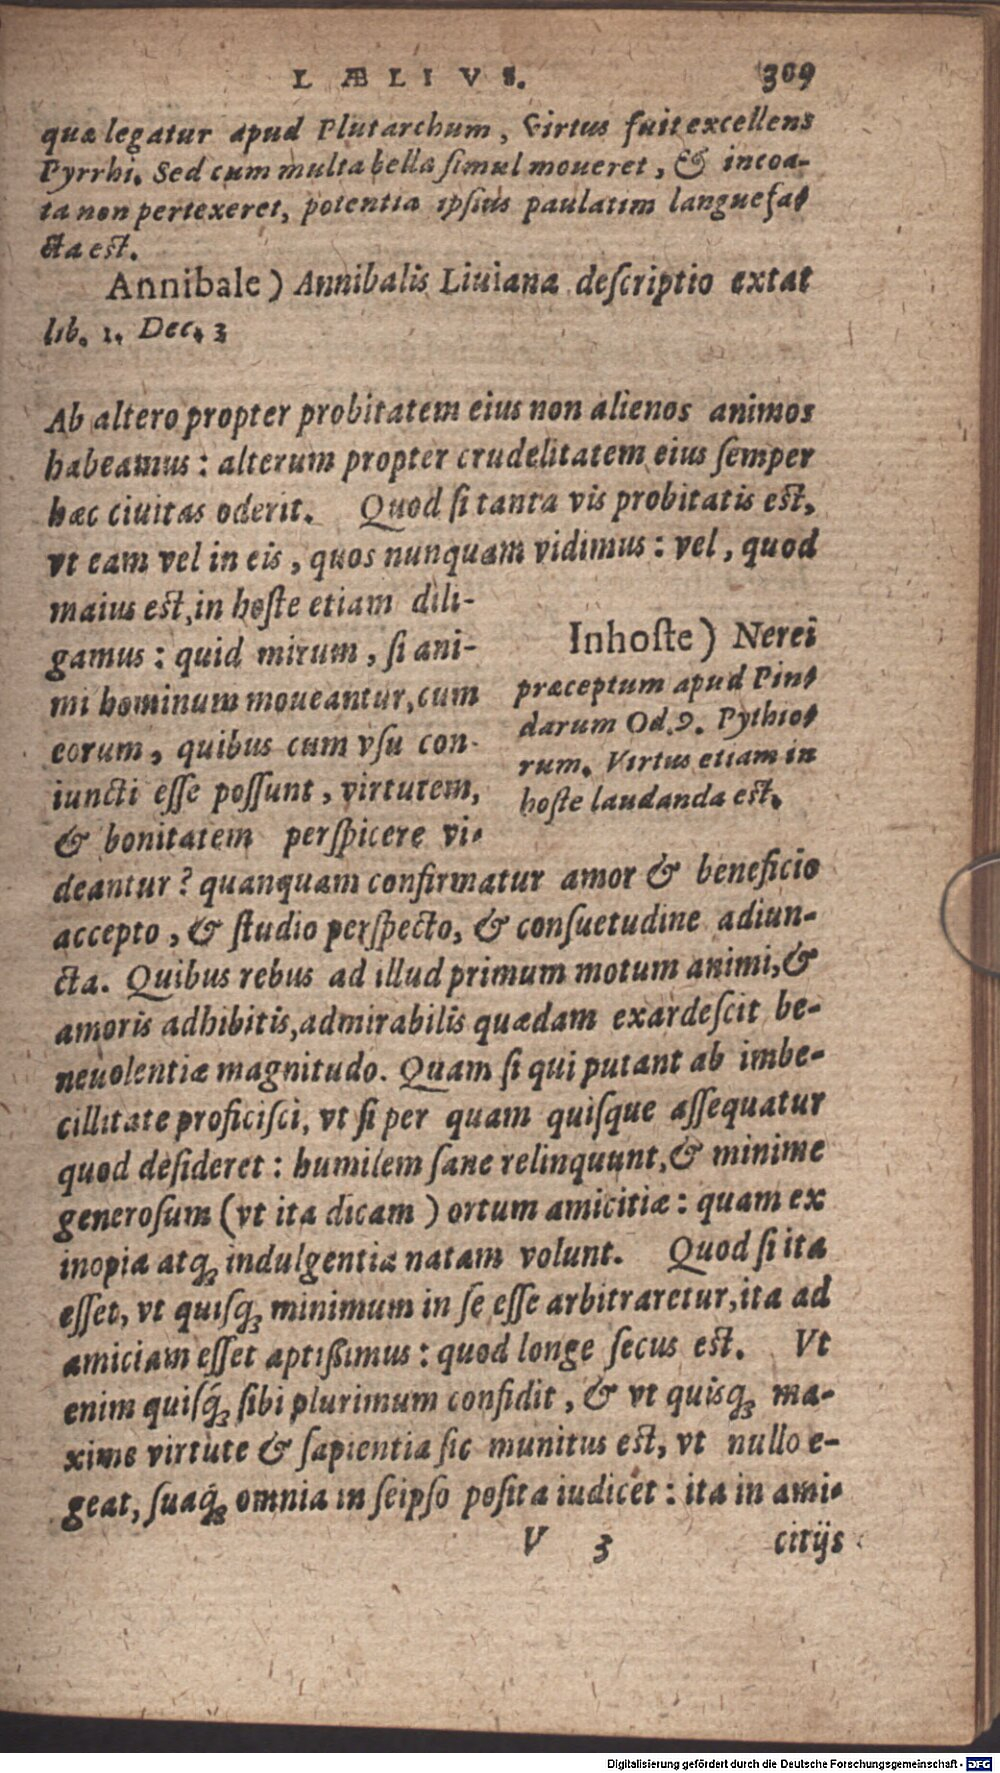 LÆLIVS. 309
quæ legatur apud Plutarchum, Virtus fuit excellens
Pyrrhi. Sed cum multa bella simul moueret, & incoa-
ta non pertexeret, potentia ipsius paulatim languefa-
cta est.
Annibale) Annibalis Liuiana descriptio extat
lib. 1. Dec. 3
Ab altero propter probitatem eius non alienos animos
habeamus: alterum propter crudelitatem eius semper
hæc ciuitas oderit. Quod si tanta vis probitatis est,
vt eam vel in eis, quos nunquam vidimus: vel, quod
maius est, in hoste etiam dili-
gamus: quid mirum, si ani-
mi hominum moueantur, cum
eorum, quibus cum vsu con-
iuncti esse possunt, virtutem,
& bonitatem perspicere vi-
Inhoste) Nerei
præceptum apud Pin-
darum Od. 9. Pythio-
rum. Virtus etiam in
hoste laudanda est.
deantur? quanquam confirmatur amor & beneficio
accepto, & studio perspecto, & consuetudine adiun-
cta. Quibus rebus ad illud primum motum animi, &
amoris adhibitis, admirabilis quædam exardescit be-
neuolentiæ magnitudo. Quam si qui putant ab imbe-
cillitate proficisci, vt si per quam quisque assequatur
quod desideret: humilem sane relinquunt, & minime
generosum (vt ita dicam) ortum amicitiæ: quam ex
inopia atq; indulgentia natam volunt. Quod si ita
esset, vt quisq; minimum in se esse arbitraretur, ita ad
amiciam esset aptißimus: quod longe secus est. Vt
enim quisq́; sibi plurimum confidit, & vt quisq; ma-
xime virtute & sapientia sic munitus est, vt nullo e-
geat, suaq́; omnia in seipso posita iudicet: ita in ami-
V 3 citijs
Digitalisierung gefördert durch die Deutsche Forschungsgemeinschaft - DFG